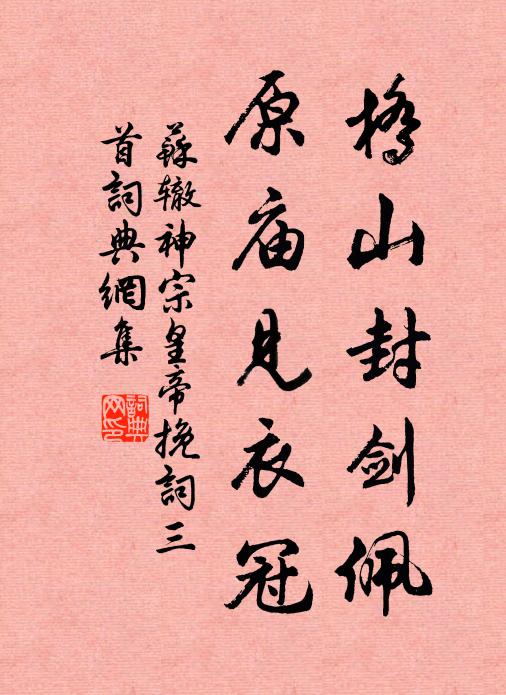 橋山封剑佩
原庙見衣冠
蘇辙神宗皇帝挽詞三
首詞典網集
詞典
网印